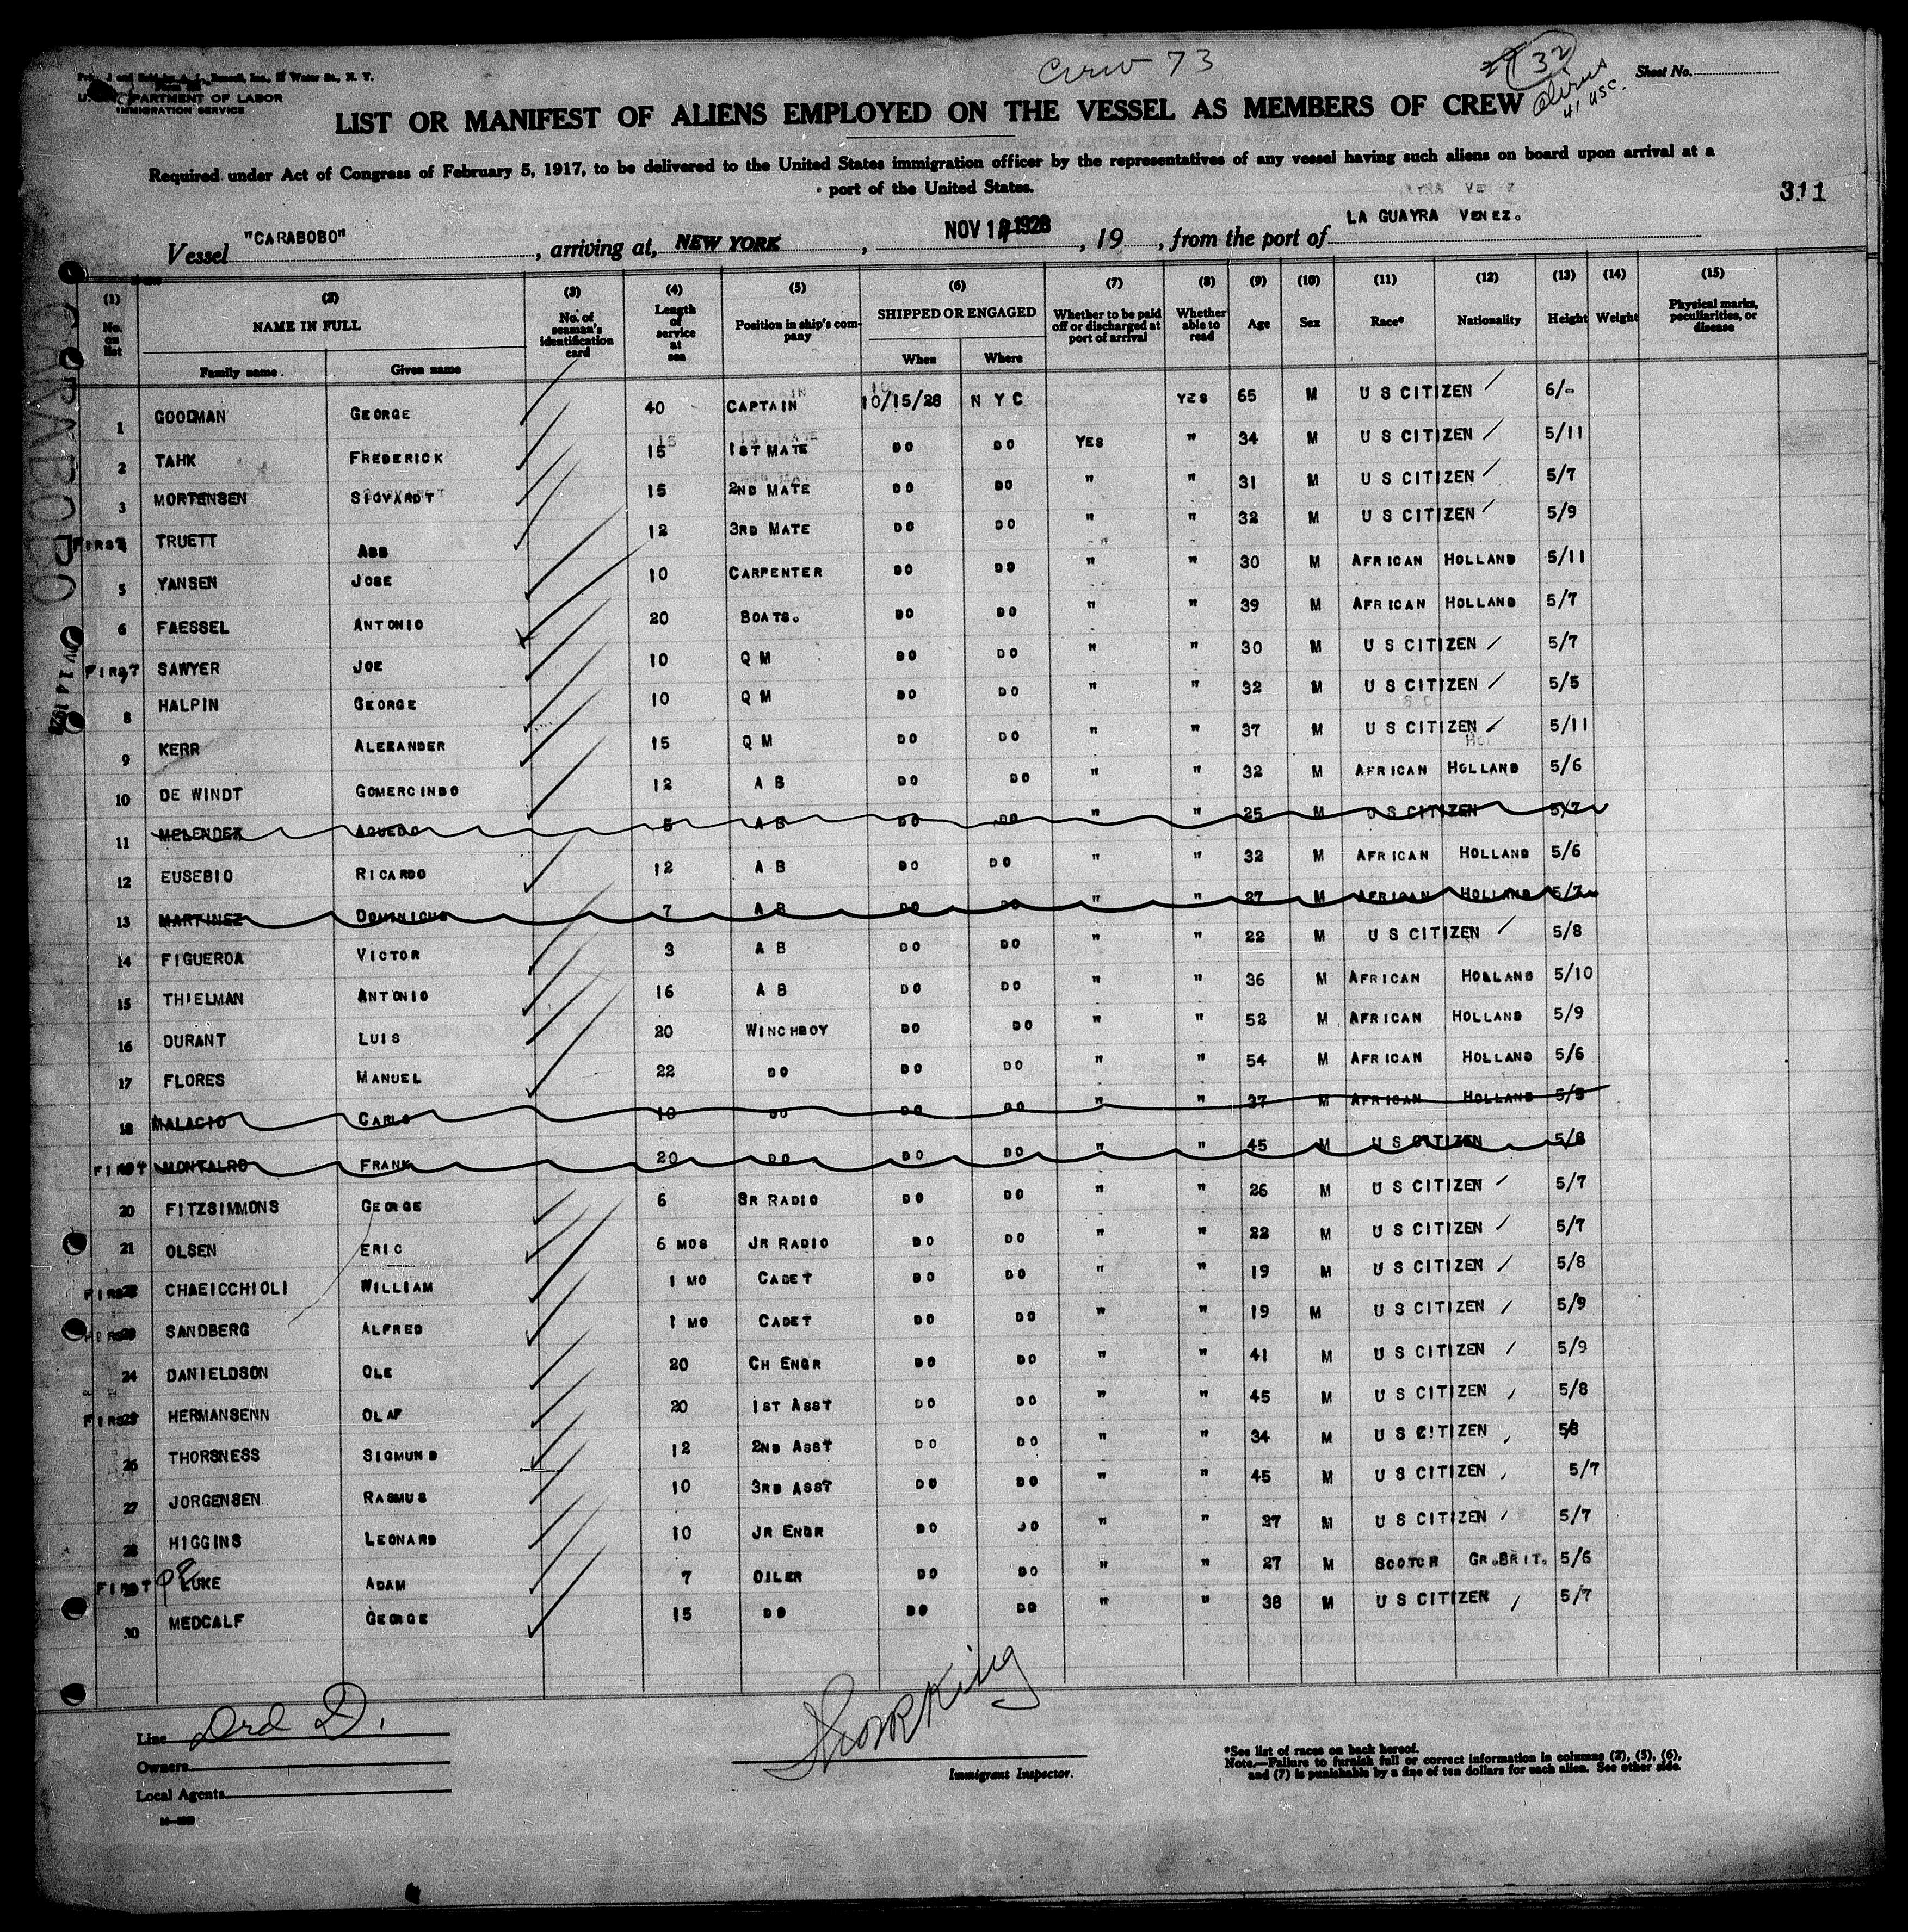 Crew 73
32
Aliens
41 USC.
Sheet No.
U. S. DEPARTMENT OF LABOR
IMMIGRATION SERVICE
LIST OR MANIFEST OF ALIENS EMPLOYED ON THE VESSEL AS MEMBERS OF CREW
Required under Act of Congress of February 5, 1917, to be delivered to the United States immigration officer by the representatives of any vessel having such aliens on board upon arrival at a
port of the United States.
311
Vessel "CARABOBO", arriving at, NEW YORK, NOV 1 1928, 19, from the port of LA GUAYRA VENEZ.
CARABOBO
(1) (2) (3) (4) (5) (6) (7) (8) (9) (10) (11) (12) (13) (14) (15)
No. on list NAME IN FULL No. of seaman's identification card Length of service at sea Position in ship's company SHIPPED OR ENGAGED Whether to be paid off or discharged at port of arrival Whether able to read Age Sex Race* Nationality Height Weight Physical marks, peculiarities, or disease
Family name Given name When Where
1 GOODMAN GEORGE 40 CAPTAIN 10/15/28 N Y C YES 65 M U S CITIZEN 6/-
2 TAHK FREDERICK 15 1ST MATE DO DO YES " 34 M U S CITIZEN 5/11
3 MORTENSEN SIGVARDT 15 2ND MATE DO DO " " 31 M U S CITIZEN 5/7
FIRST TRUETT ABB 12 3RD MATE DO DO " " 32 M U S CITIZEN 5/9
5 YANSEN JOSE 10 CARPENTER DO DO " " 30 M AFRICAN HOLLAND 5/11
6 FAESSEL ANTONIO 20 BOATS. DO DO " " 39 M AFRICAN HOLLAND 5/7
FIRST SAWYER JOE 10 Q M DO DO " " 30 M U S CITIZEN 5/7
8 HALPIN GEORGE 10 Q M DO DO " " 32 M U S CITIZEN 5/5
9 KERR ALEXANDER 15 Q M DO DO " " 37 M U S CITIZEN 5/11
10 DE WINDT GOMERCINDO 12 A B DO DO " " 32 M AFRICAN HOLLAND 5/6
11 MELENDEZ AQUEDO 5 A B DO DO " " 25 M U S CITIZEN 5/7
12 EUSEBIO RICARDO 12 A B DO DO " " 32 M AFRICAN HOLLAND 5/6
13 MARTINEZ DOMINICUS 7 A B DO DO " " 27 M AFRICAN HOLLAND 5/7
14 FIGUEROA VICTOR 3 A B DO DO " " 22 M U S CITIZEN 5/8
15 THIELMAN ANTONIO 16 A B DO DO " " 36 M AFRICAN HOLLAND 5/10
16 DURANT LUIS 20 WINCHBOY DO DO " " 52 M AFRICAN HOLLAND 5/9
17 FLORES MANUEL 22 DO DO DO " " 54 M AFRICAN HOLLAND 5/6
18 MALACIO CARLO 10 DO DO DO " " 37 M AFRICAN HOLLAND 5/5
FIRST MONTALRO FRANK 20 DO DO DO " " 45 M U S CITIZEN 5/8
20 FITZSIMMONS GEORGE 6 SR RADIO DO DO " " 26 M U S CITIZEN 5/7
21 OLSEN ERIC 6 MOS JR RADIO DO DO " " 22 M U S CITIZEN 5/7
FIRST CHAEICCHIOLI WILLIAM 1 MO CADET DO DO " " 19 M U S CITIZEN 5/8
FIRST SANDBERG ALFRED 1 MO CADET DO DO " " 19 M U S CITIZEN 5/9
24 DANIELDSON OLE 20 CH ENGR DO DO " " 41 M U S CITIZEN 5/9
FIRST HERMANSENN OLAF 20 1ST ASST DO DO " " 45 M U S CITIZEN 5/8
26 THORSNESS SIGMUND 12 2ND ASST DO DO " " 34 M U S CITIZEN 5/8
27 JORGENSEN RASMUS 10 3RD ASST DO DO " " 45 M U S CITIZEN 5/7
28 HIGGINS LEONARD 10 JR ENGR DO DO " " 27 M U S CITIZEN 5/7
FIRST LUKE ADAM 7 OILER DO DO " " 27 M SCOTCH GR.BRIT. 5/6
30 MEDCALF GEORGE 15 DO DO DO " " 38 M U S CITIZEN 5/7
Line Ord D.
Owners
Local Agents
Immigrant Inspector.
*See list of races on back hereof.
Note.—Failure to furnish full or correct information in columns (2), (5), (6),
and (7) is punishable by a fine of ten dollars for each alien. See other side.